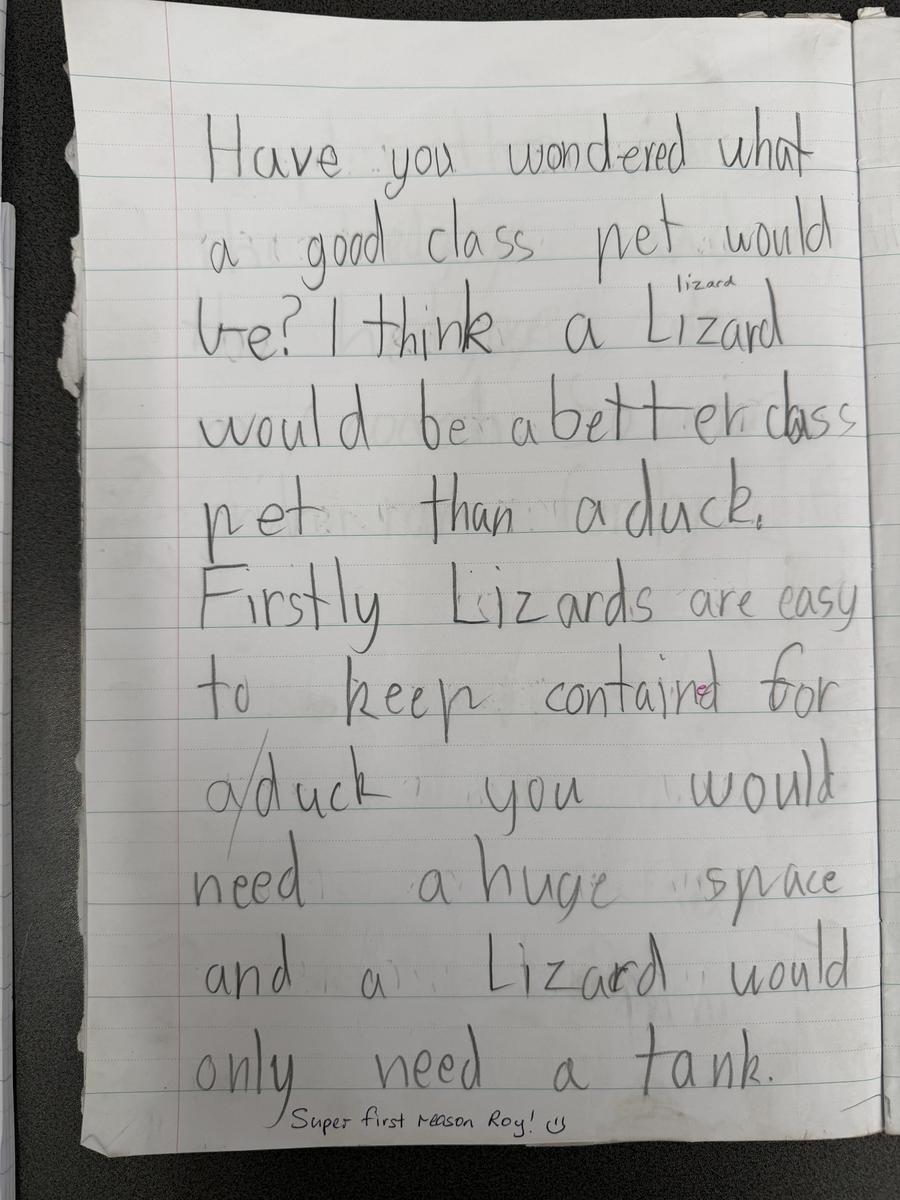 Have you wondered what
a good class pet would
lizard
be? I think a Lizard
would be a better class
pet than a duck.
Firstly Lizards are easy
to keep contained for
a/duck you would
need a huge space
and a Lizard would
only need a tank.
Super first reason Roy! ☺